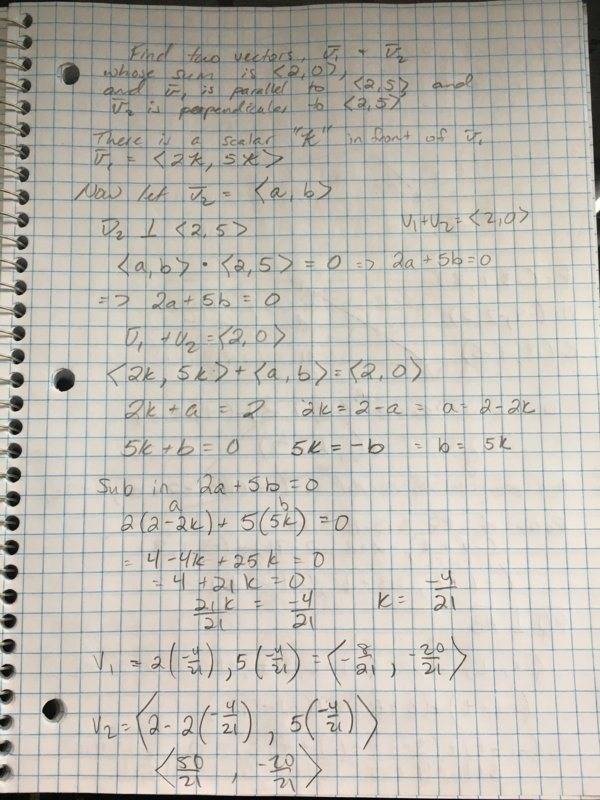 Find two vectors, v̄₁ + v̄₂
whose sum is <2,0>,
and v̄₁ is parallel to <2,5> and
v̄₂ is perpendicular to <2,5>
There is a scalar "K" in front of v̄₁
v̄₁ = <2K, 5K>
Now let v̄₂ = <a, b>
v̄₂ ⊥ <2,5> V₁+V₂=<2,0>
<a,b> • <2,5> = 0 => 2a+5b=0
=> 2a+5b = 0
v̄₁ + v₂ = <2,0>
<2k, 5k> + <a,b> = <2,0>
2k + a = 2 2k = 2-a = a = 2-2k
5k + b = 0 5k = -b = b = 5k
Sub in 2a+5b=0
a b
2(2-2k) + 5(5k) = 0
= 4-4k + 25k = 0
= 4 + 21k = 0
21k/21 = -4/21 k = -4/21
V₁ = 2(-4/21), 5(-4/21) = <-8/21, -20/21>
V₂ = <2-2(-4/21), 5(-4/21)>
<50/21, -20/21>